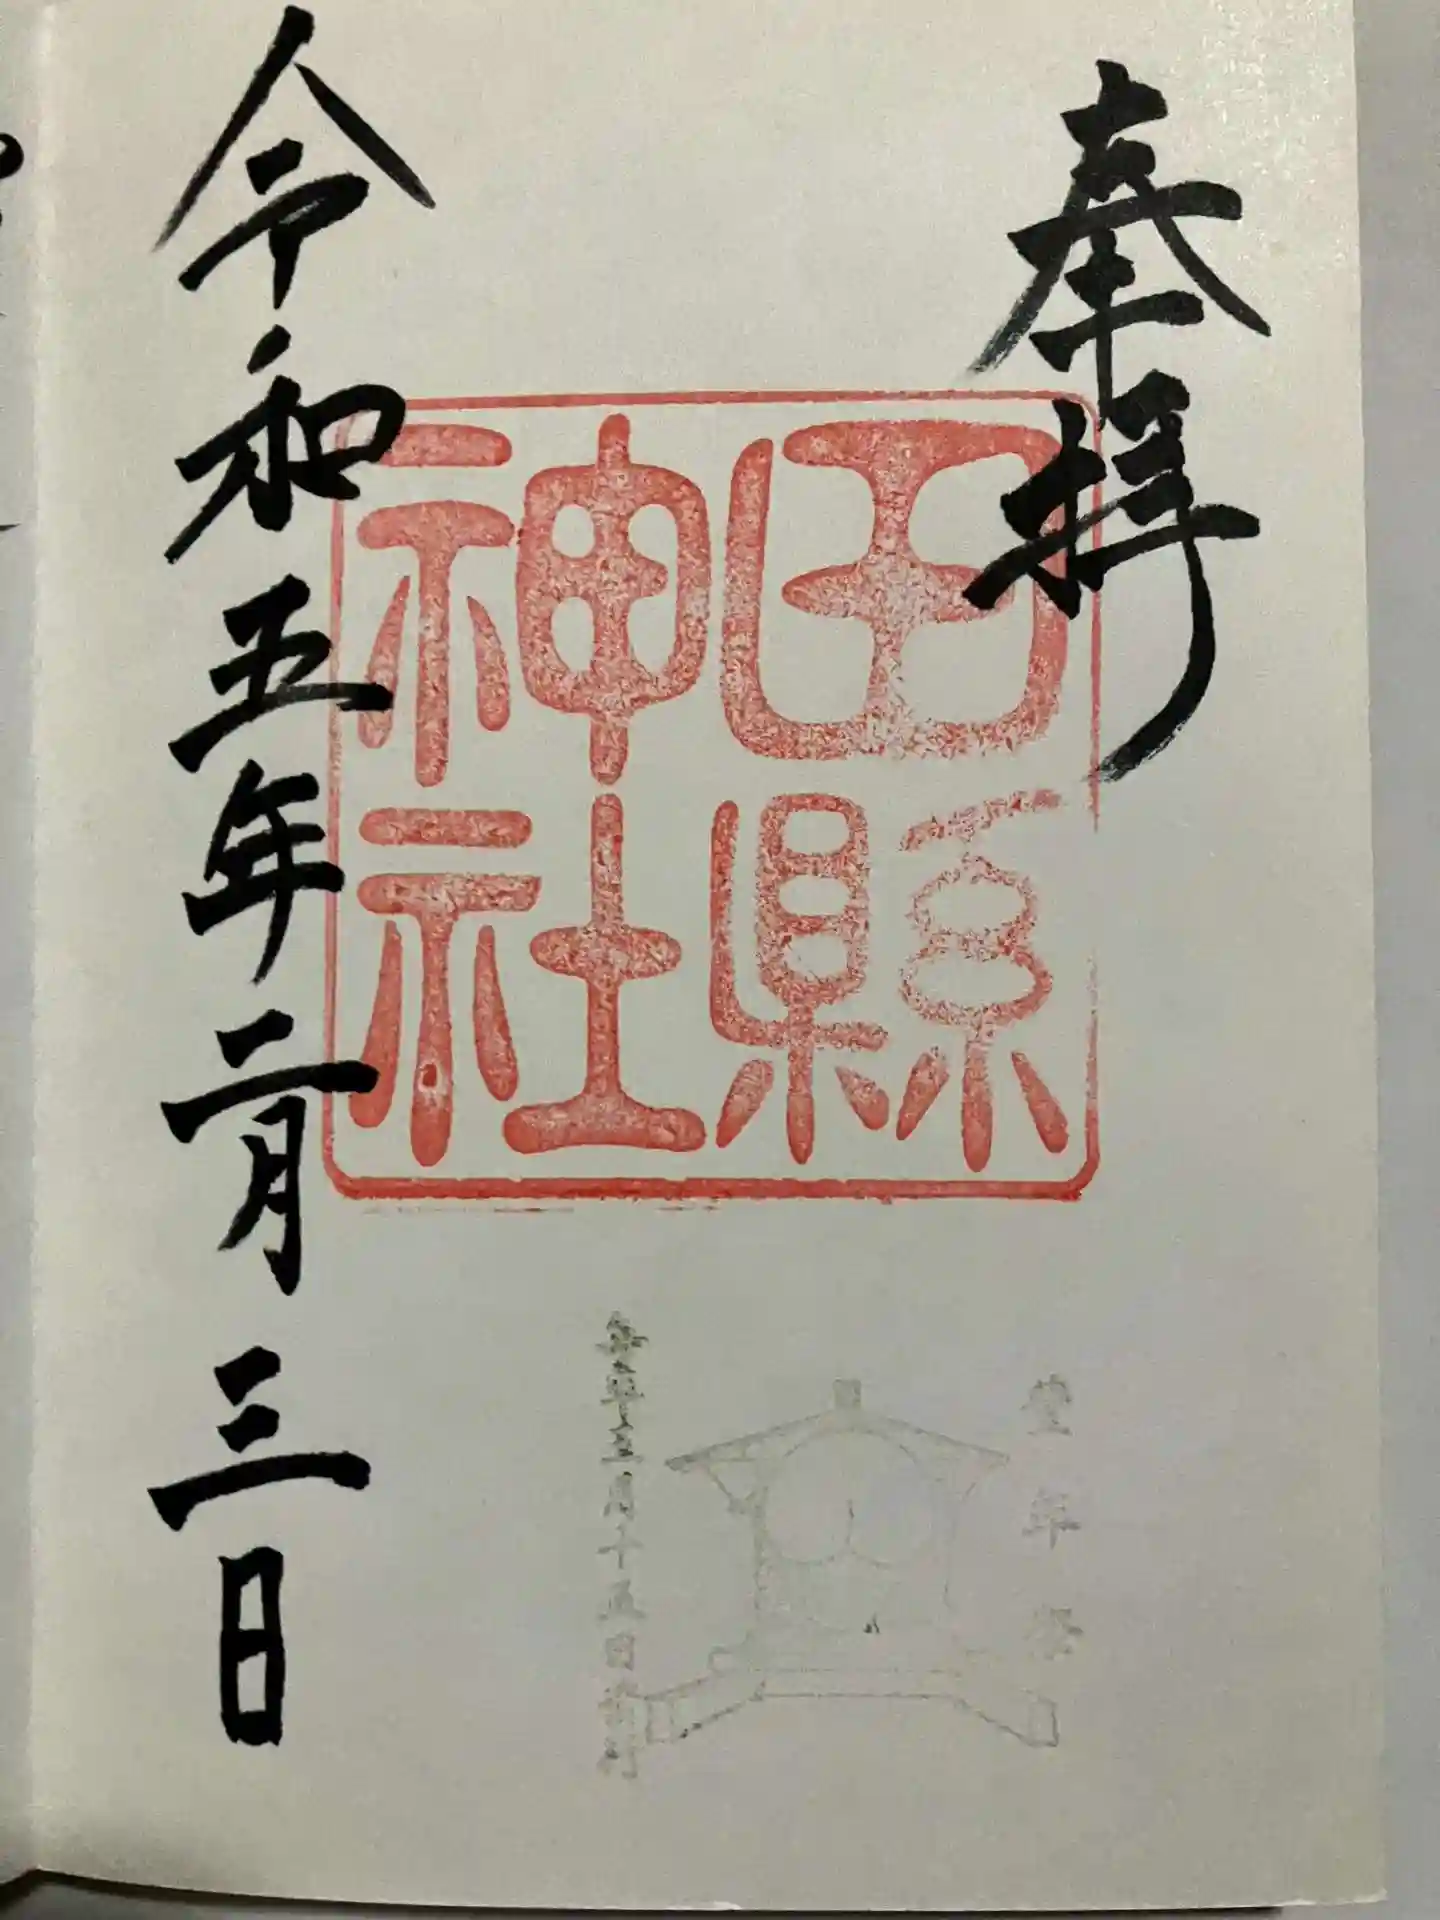 奉拝
田縣
神社
豊年祭
毎年三月十五日斎行
令和五年二月三日